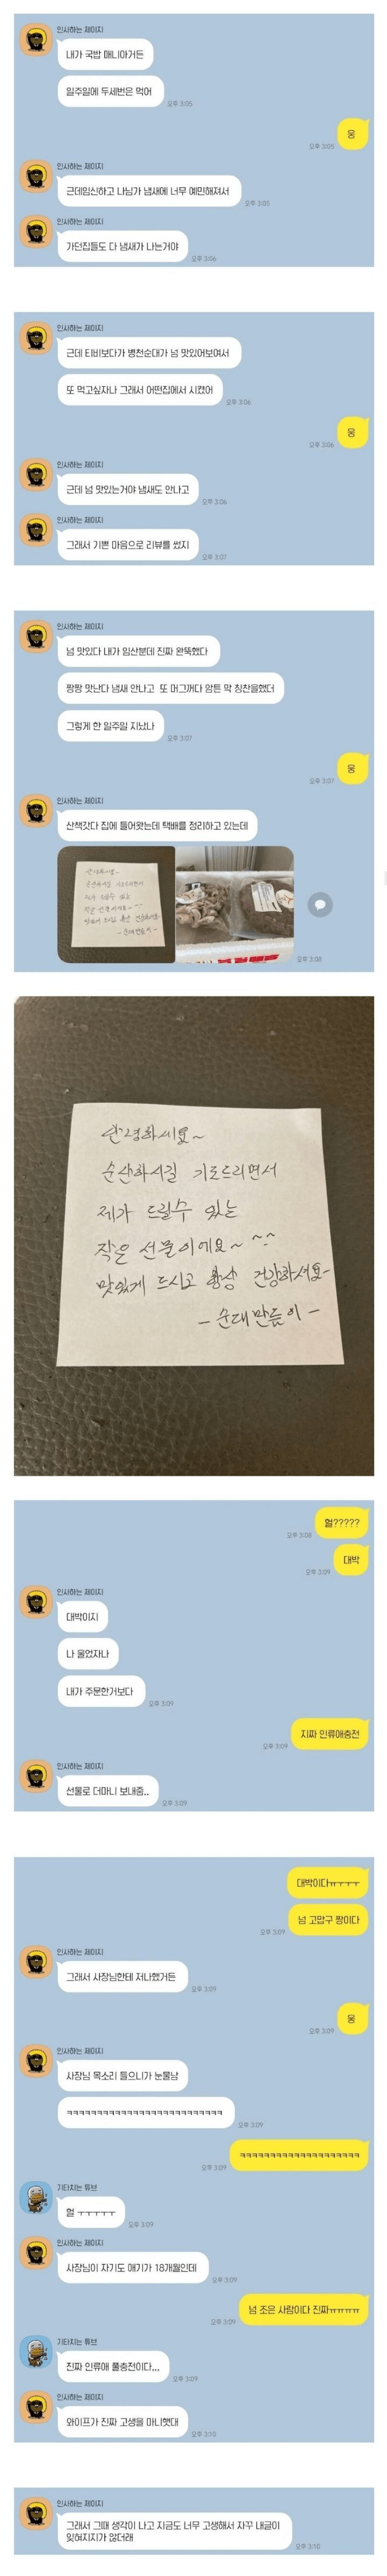 인사하는 제이지
내가 국밥 매니아거든
일주일에 두세번은 먹어
오후 3:05
웅
오후 3:05
인사하는 제이지
근데임신하고 나님가 냄새에 너무 예민해져서
오후 3:05
인사하는 제이지
가던집들도 다 냄새가 나는거야
오후 3:06
인사하는 제이지
근데 티비보다가 병천순대가 넘 맛있어보여서
또 먹고싶자나 그래서 어떤집에서 시켰어
오후 3:06
웅
오후 3:06
인사하는 제이지
근데 넘 맛있는거야 냄새도 안나고
오후 3:06
인사하는 제이지
그래서 기쁜 마음으로 리뷰를 썼지
오후 3:07
인사하는 제이지
넘 맛있다 내가 임산분데 진짜 완뚝했다
짱짱 맛난다 냄새 안나고 또 머그꺼다 암튼 막 칭찬을했더
그렇게 한 일주일 지났나
오후 3:07
웅
오후 3:07
인사하는 제이지
산책갓다 집에 들어왓는데 택배를 정리하고 있는데
오후 3:08
안녕하세요~
순산하시길 기도드리면서
제가 드릴수 있는
작은 선물이에요~ ^^
맛있게 드시고 항상 건강하셔요~
- 순대만듦이 -
헐?????
오후 3:08
대박
오후 3:09
인사하는 제이지
대박이지
나 울었자나
내가 주문한거보다
오후 3:09
지짜 인류애충전
오후 3:09
인사하는 제이지
선물로 더마니 보내줌..
오후 3:09
대박이다ㅠㅜㅜㅜ
넘 고맙구 짱이다
오후 3:09
인사하는 제이지
그래서 사장님한테 저나했거든
오후 3:09
웅
오후 3:09
인사하는 제이지
사장님 목소리 들으니가 눈물남
ㅋㅋㅋㅋㅋㅋㅋㅋㅋㅋㅋㅋㅋㅋㅋㅋㅋㅋㅋㅋㅋㅋㅋㅋㅋㅋ
오후 3:09
ㅋㅋㅋㅋㅋㅋㅋㅋㅋㅋㅋㅋㅋㅋㅋㅋㅋㅋㅋㅋ
오후 3:09
기타치는 튜브
헐 ㅜㅜㅜㅜㅜ
오후 3:09
인사하는 제이지
사장님이 자기도 애기가 18개월인데
오후 3:09
넘 조은 사람이다 진짜ㅠㅠㅠㅠ
오후 3:09
기타치는 튜브
진짜 인류애 풀충전이다...
오후 3:09
인사하는 제이지
와이프가 진짜 고생을 마니햇대
오후 3:10
인사하는 제이지
그래서 그때 생각이 나고 지금도 너무 고생해서 자꾸 내글이
잊혀지지가 않더래
오후 3:10